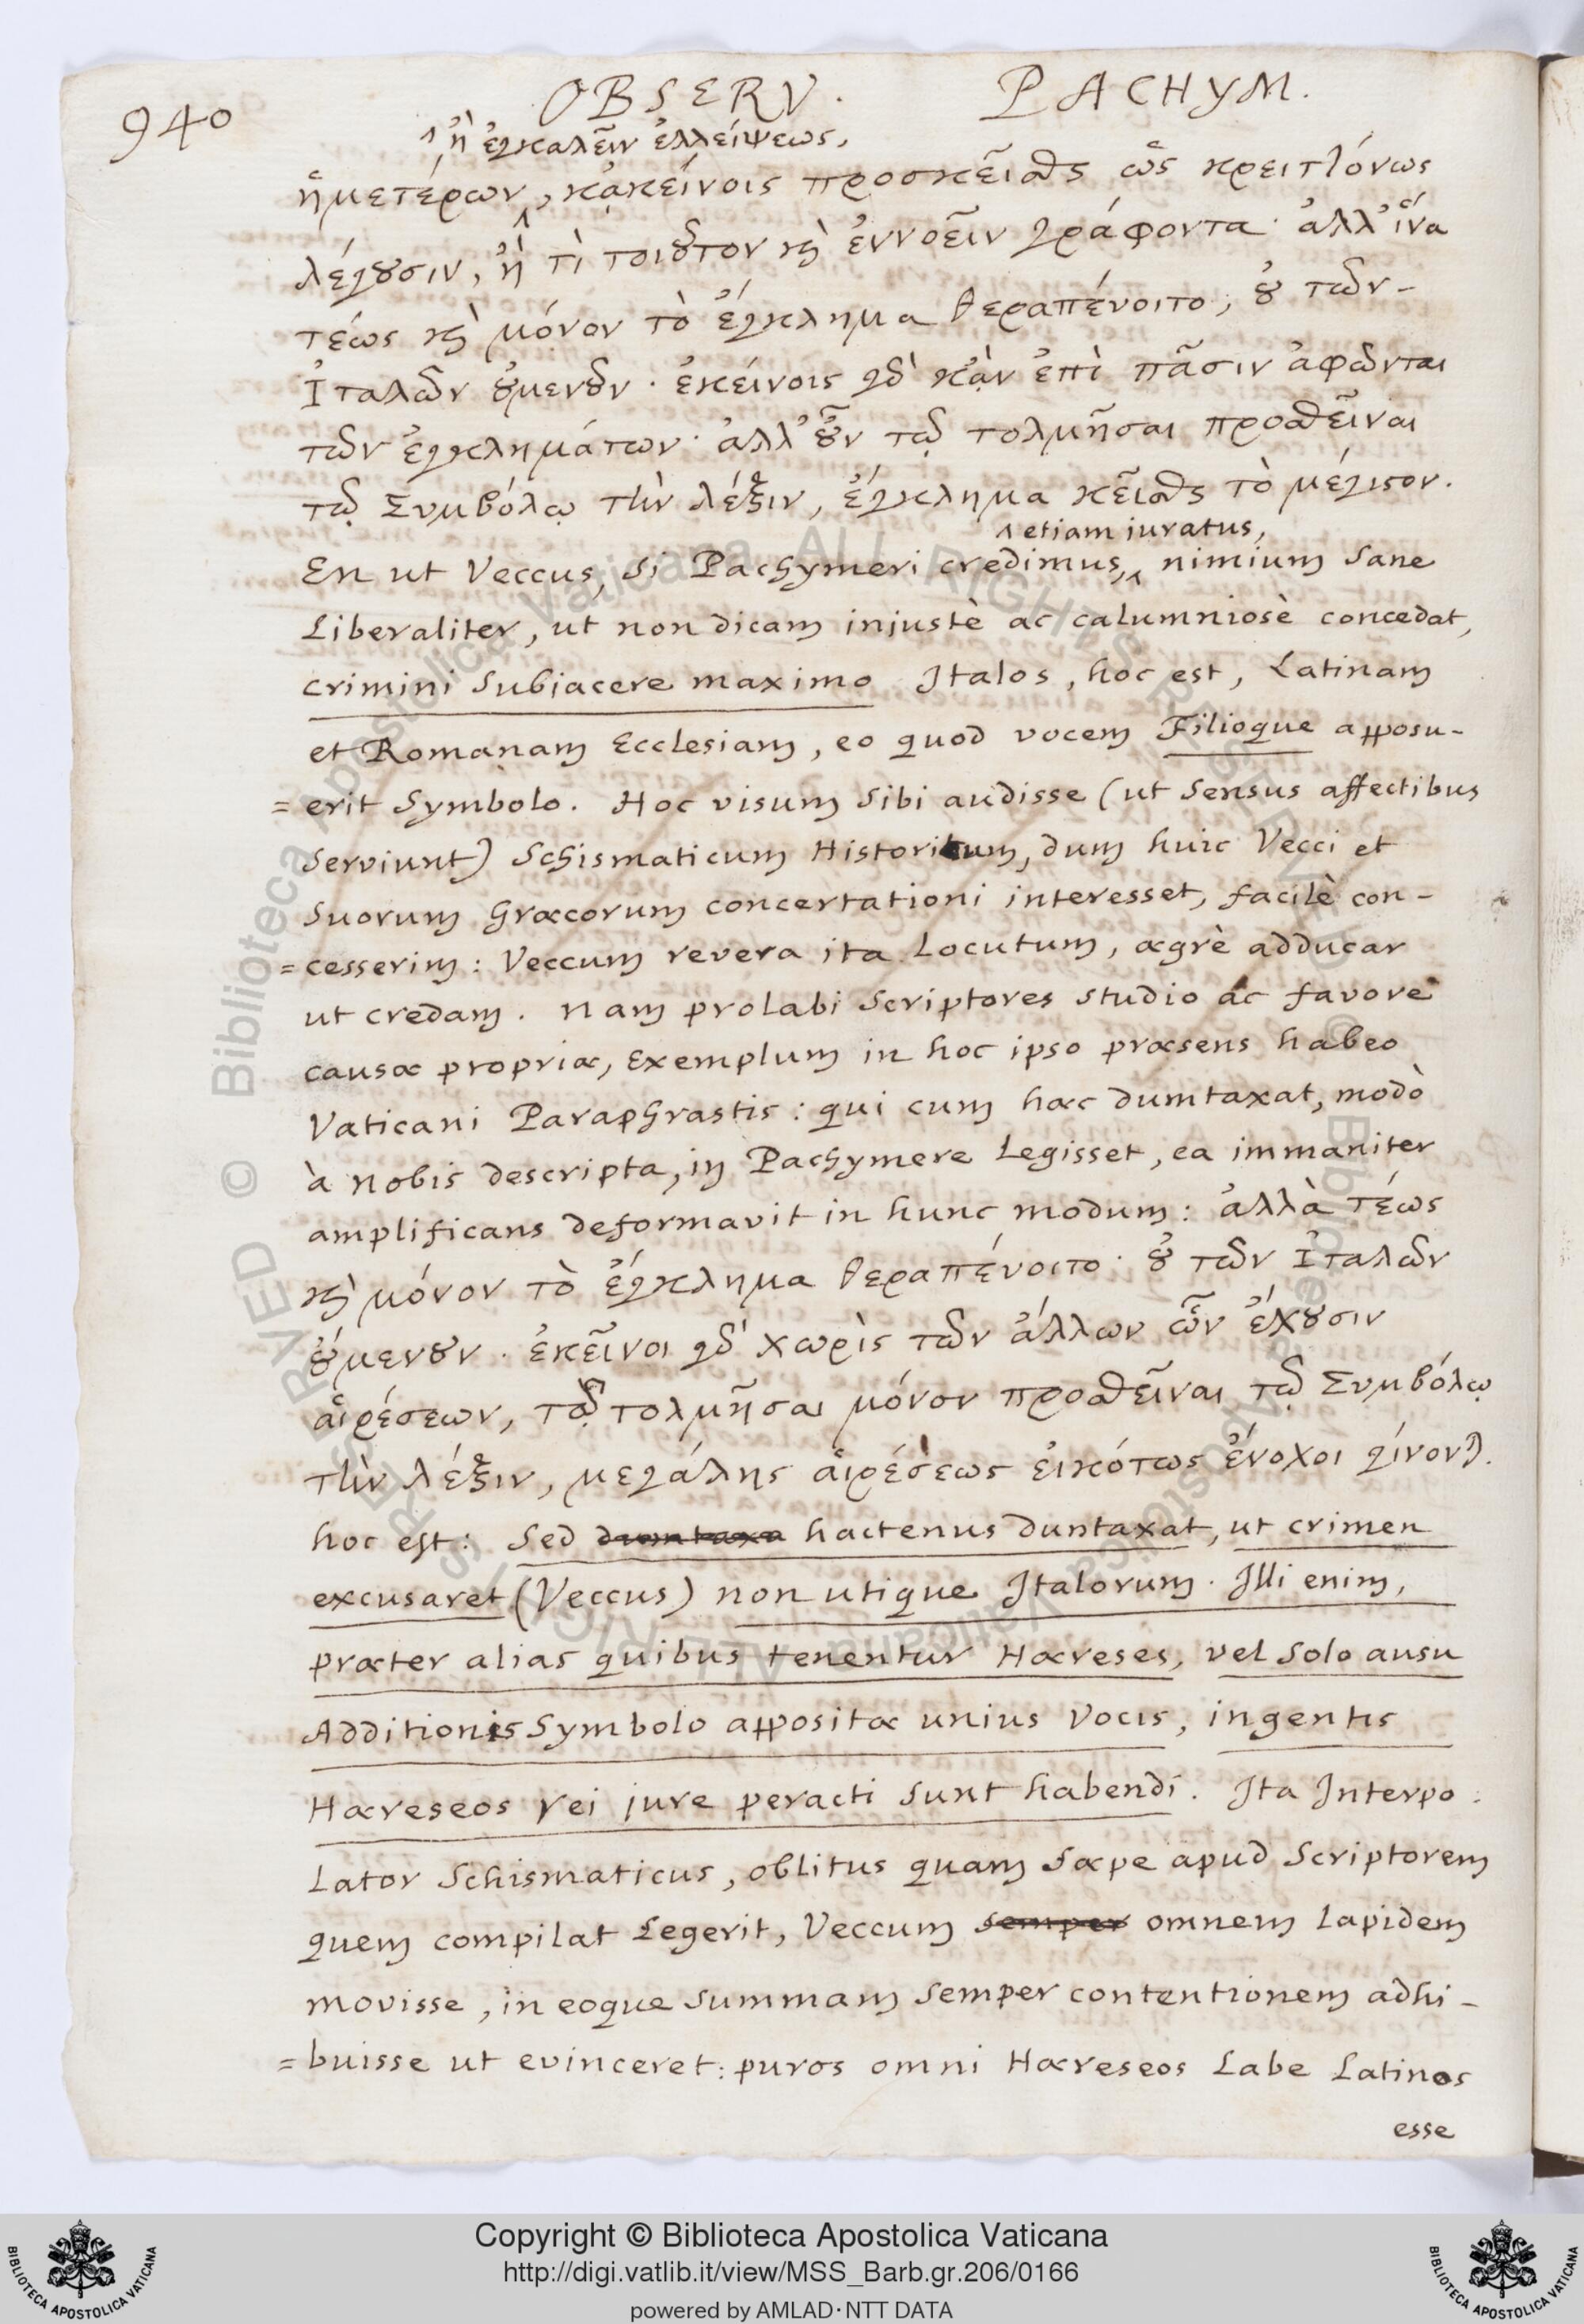 940 OBSERV. PACHYM.
ἢ ἐγκαλεῖν ἐλλείψεως,
ἡμετέρων, κἀκείνοις προσκεῖσθαι ὡς κρειττόνως
λέγουσιν, ἢ τὶ τοιοῦτον καὶ ἐννοεῖν γράφοντα· ἀλλ' ἵνα
τέως καὶ μόνον τὸ ἔγκλημα θεραπεύοιτο, οὐ τῶν-
Ἰταλῶν οὐμενοῦν· ἐκείνοις γὰρ κἂν ἐπὶ πᾶσιν ἀφῶνται
τῶν ἐγκλημάτων· ἀλλ' οὖν τῷ τολμῆσαι προσθεῖναι
τῷ Συμβόλῳ τὴν λέξιν, ἔγκλημα κεῖσθαι τὸ μέγιστον.
etiam juratus,
En ut Veccus, si Pachymeri credimus, nimium sane
Liberaliter, ut non dicam injustè ac calumniosè concedat,
crimini subjacere maximo Italos, hoc est, Latinam
et Romanam Ecclesiam, eo quod vocem Filioque apposu-
=erit Symbolo. Hoc visum sibi audisse (ut sensus affectibus
serviunt) Schismaticum Historicum, dum huic Vecci et
suorum Græcorum concertationi interesset, facilè con-
=cesserim: Veccum revera ita Locutum, ægrè adducar
ut credam. Nam prolabi Scriptores studio ac favore
causæ propriæ, Exemplum in hoc ipso præsens habeo
Vaticani Paraphrastis: qui cum hæc dumtaxat, modò
à nobis descripta, in Pachymere Legisset, ea immaniter
amplificans deformavit in hunc modum: ἀλλὰ τέως
καὶ μόνον τὸ ἔγκλημα θεραπεύοιτο· οὐ τῶν Ἰταλῶν
οὔμενουν. ἐκεῖνοι γὰρ χωρὶς τῶν ἄλλων ὧν ἔχουσιν
αἱρέσεων, τῷ τολμῆσαι μόνον προσθεῖναι τῷ Συμβόλῳ
τὴν λέξιν, μεγάλης αἱρέσεως εἰκότως ἔνοχοι γίνονται.
hoc est: Sed duntaxa hactenus duntaxat, ut crimen
excusaret (Veccus) non utique Italorum. Illi enim,
præter alias quibus tenentur Hæreses, vel solo ausu
Additionis Symbolo appositæ unius Vocis, ingentis
Hæreseos rei jure peracti sunt habendi. Ita Interpo:
Lator Schismaticus, oblitus quam sæpe apud Scriptorem
quem compilat Legerit, Veccum semper omnem Lapidem
movisse, in eoque summam semper contentionem adhi-
=buisse ut evinceret: puros omni Hæreseos Labe Latinos
esse
Copyright © Biblioteca Apostolica Vaticana
http://digi.vatlib.it/view/MSS_Barb.gr.206/0166
powered by AMLAD·NTT DATA
BIBLIOTECA APOSTOLICA VATICANA
BIBLIOTECA APOSTOLICA VATICANA